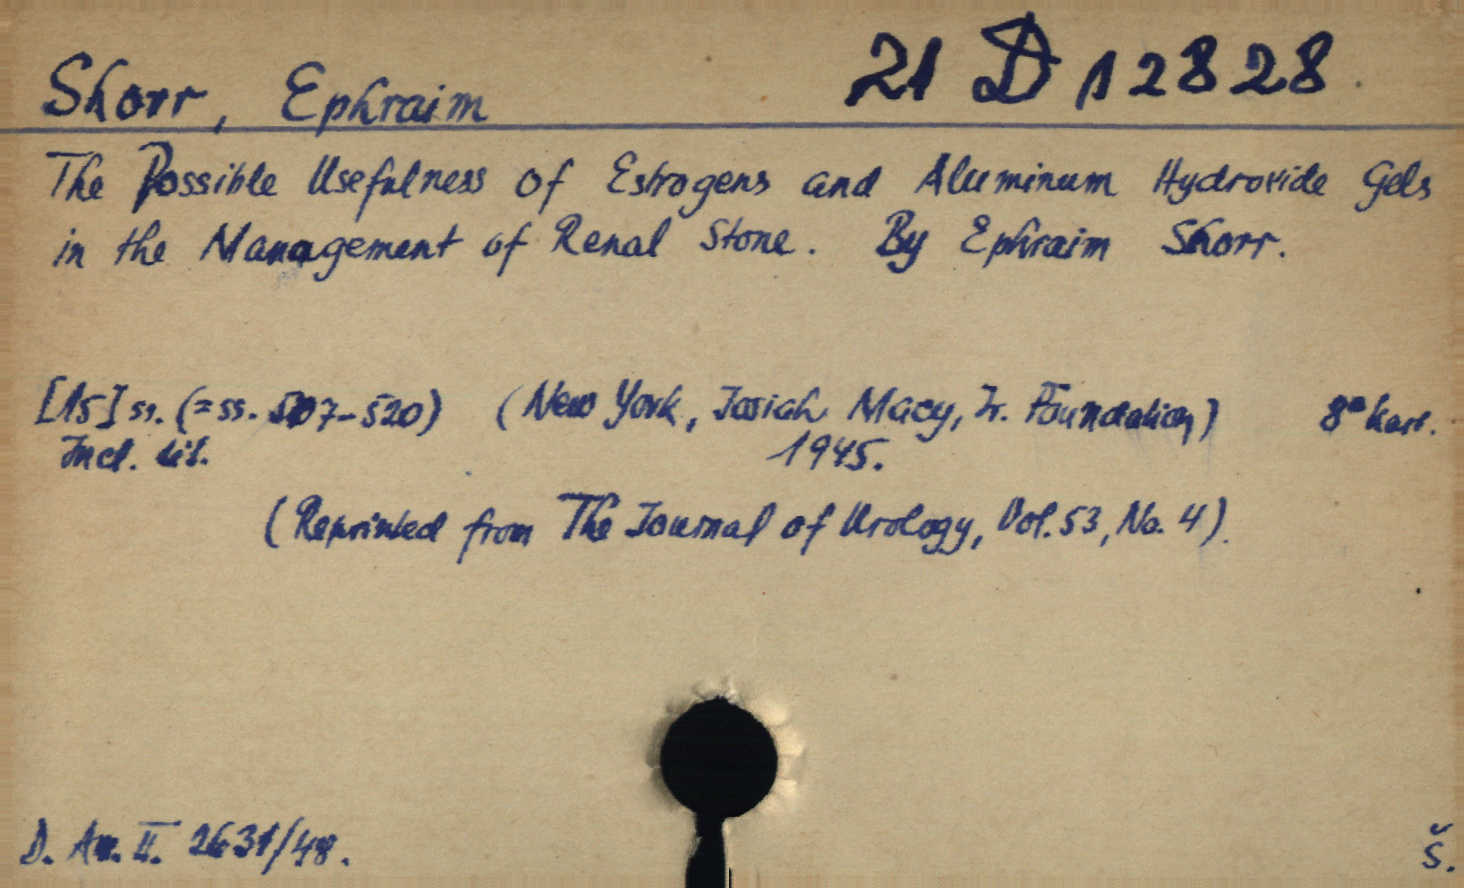 Shorr, Ephraim 21 D 12828
The Possible Usefulness of Estrogens and Aluminum Hydroxide Gels
in the Management of Renal Stone. By Ephraim Shorr.
[15] ss. (=ss. 507-520) (New York, Josiah Macy, Jr. Foundation) 8° kart.
Incl. tit. 1945.
(Reprinted from The Journal of Urology, Vol. 53, No. 4).
D. Am. II. 2631/48. Š.